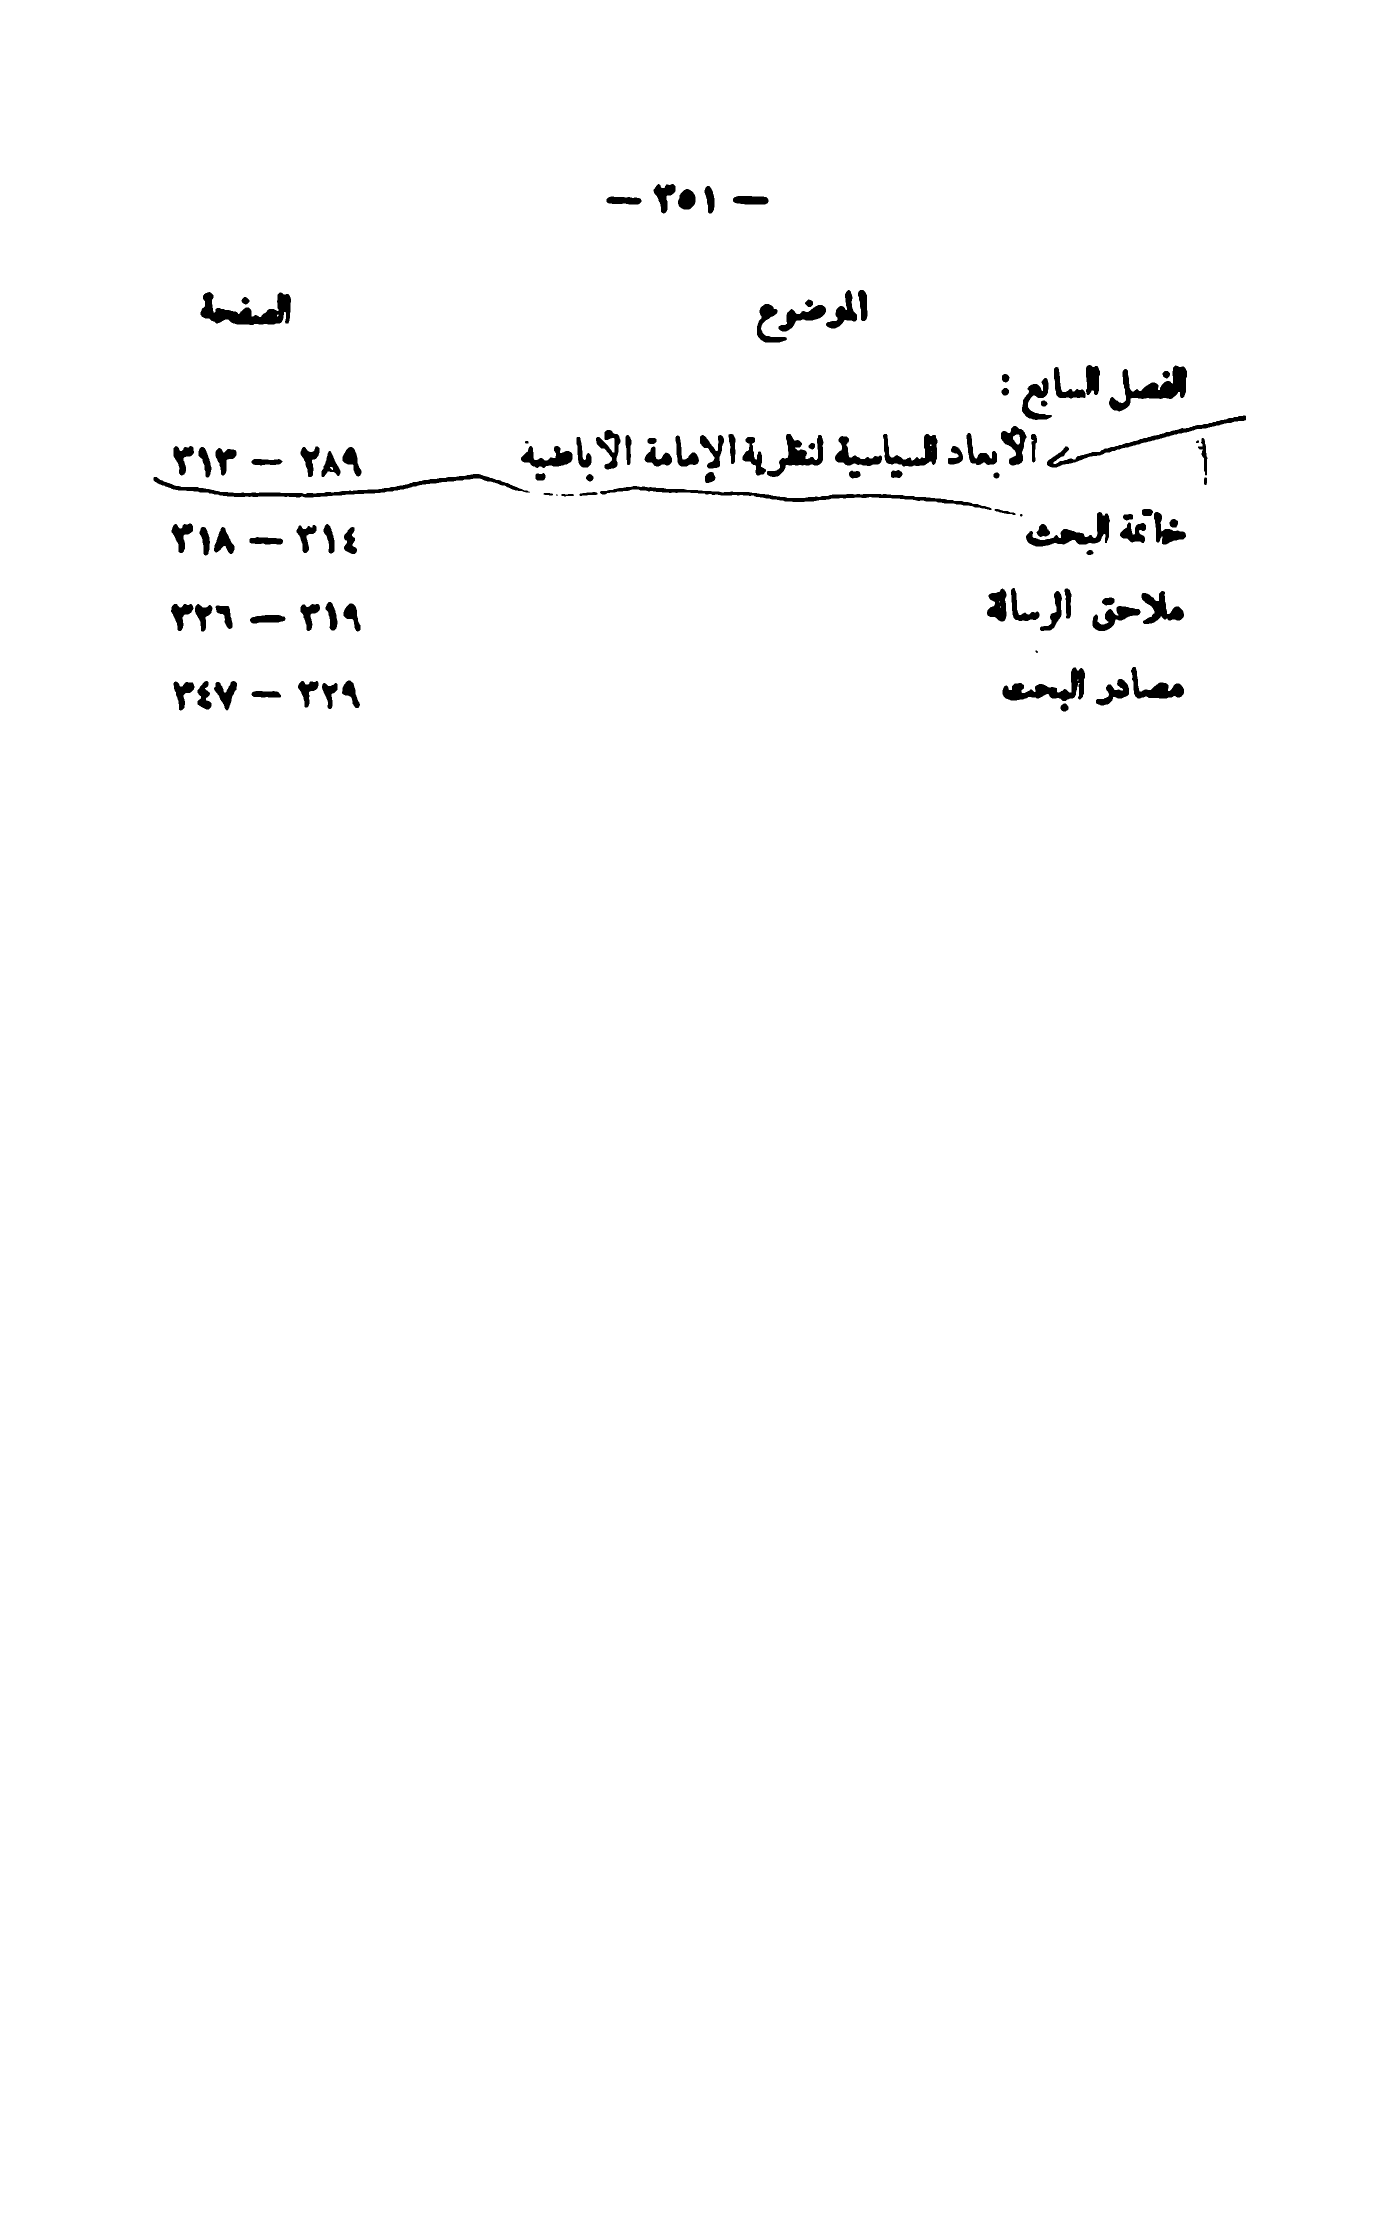 — ٣٥١ —
الموضوع الصفحة
الفصل السابع :
الأبعاد السياسية لنظرية الإمامة الأباضية ٢٨٩ — ٣١٣
خاتمة البحث ٣١٤ — ٣١٨
ملاحق الرسالة ٣١٩ — ٣٢٦
مصادر البحث ٣٢٩ — ٣٤٧